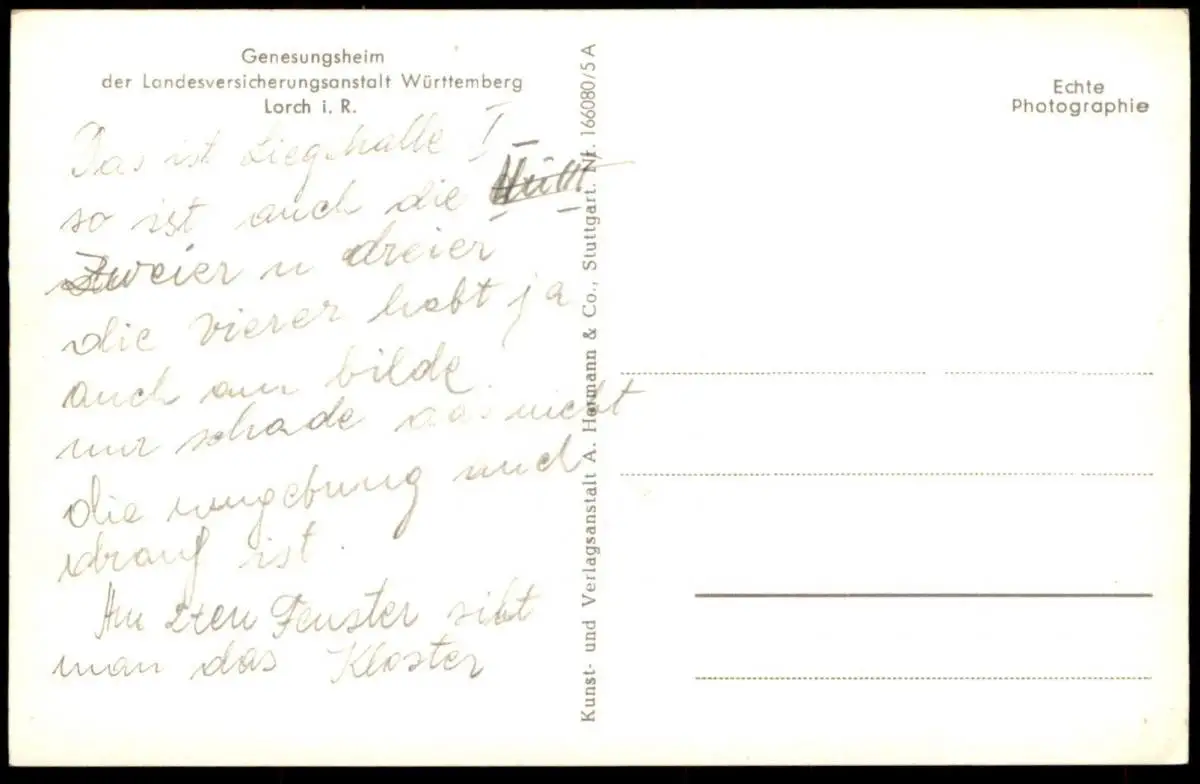 Genesungsheim
der Landesversicherungsanstalt Württemberg
Lorch i. R.
Das ist Liegehalle I
so ist auch die
Zweier u dreier
die vierer habt ja
auch am bilde.
nur schade das nicht
die umgebung auch
drauf ist.
Am 2ten Fenster siht
man das Kloster
Kunst- und Verlagsanstalt A. Hermann & Co., Stuttgart. Nr. 166080/5 A
Echte
Photographie